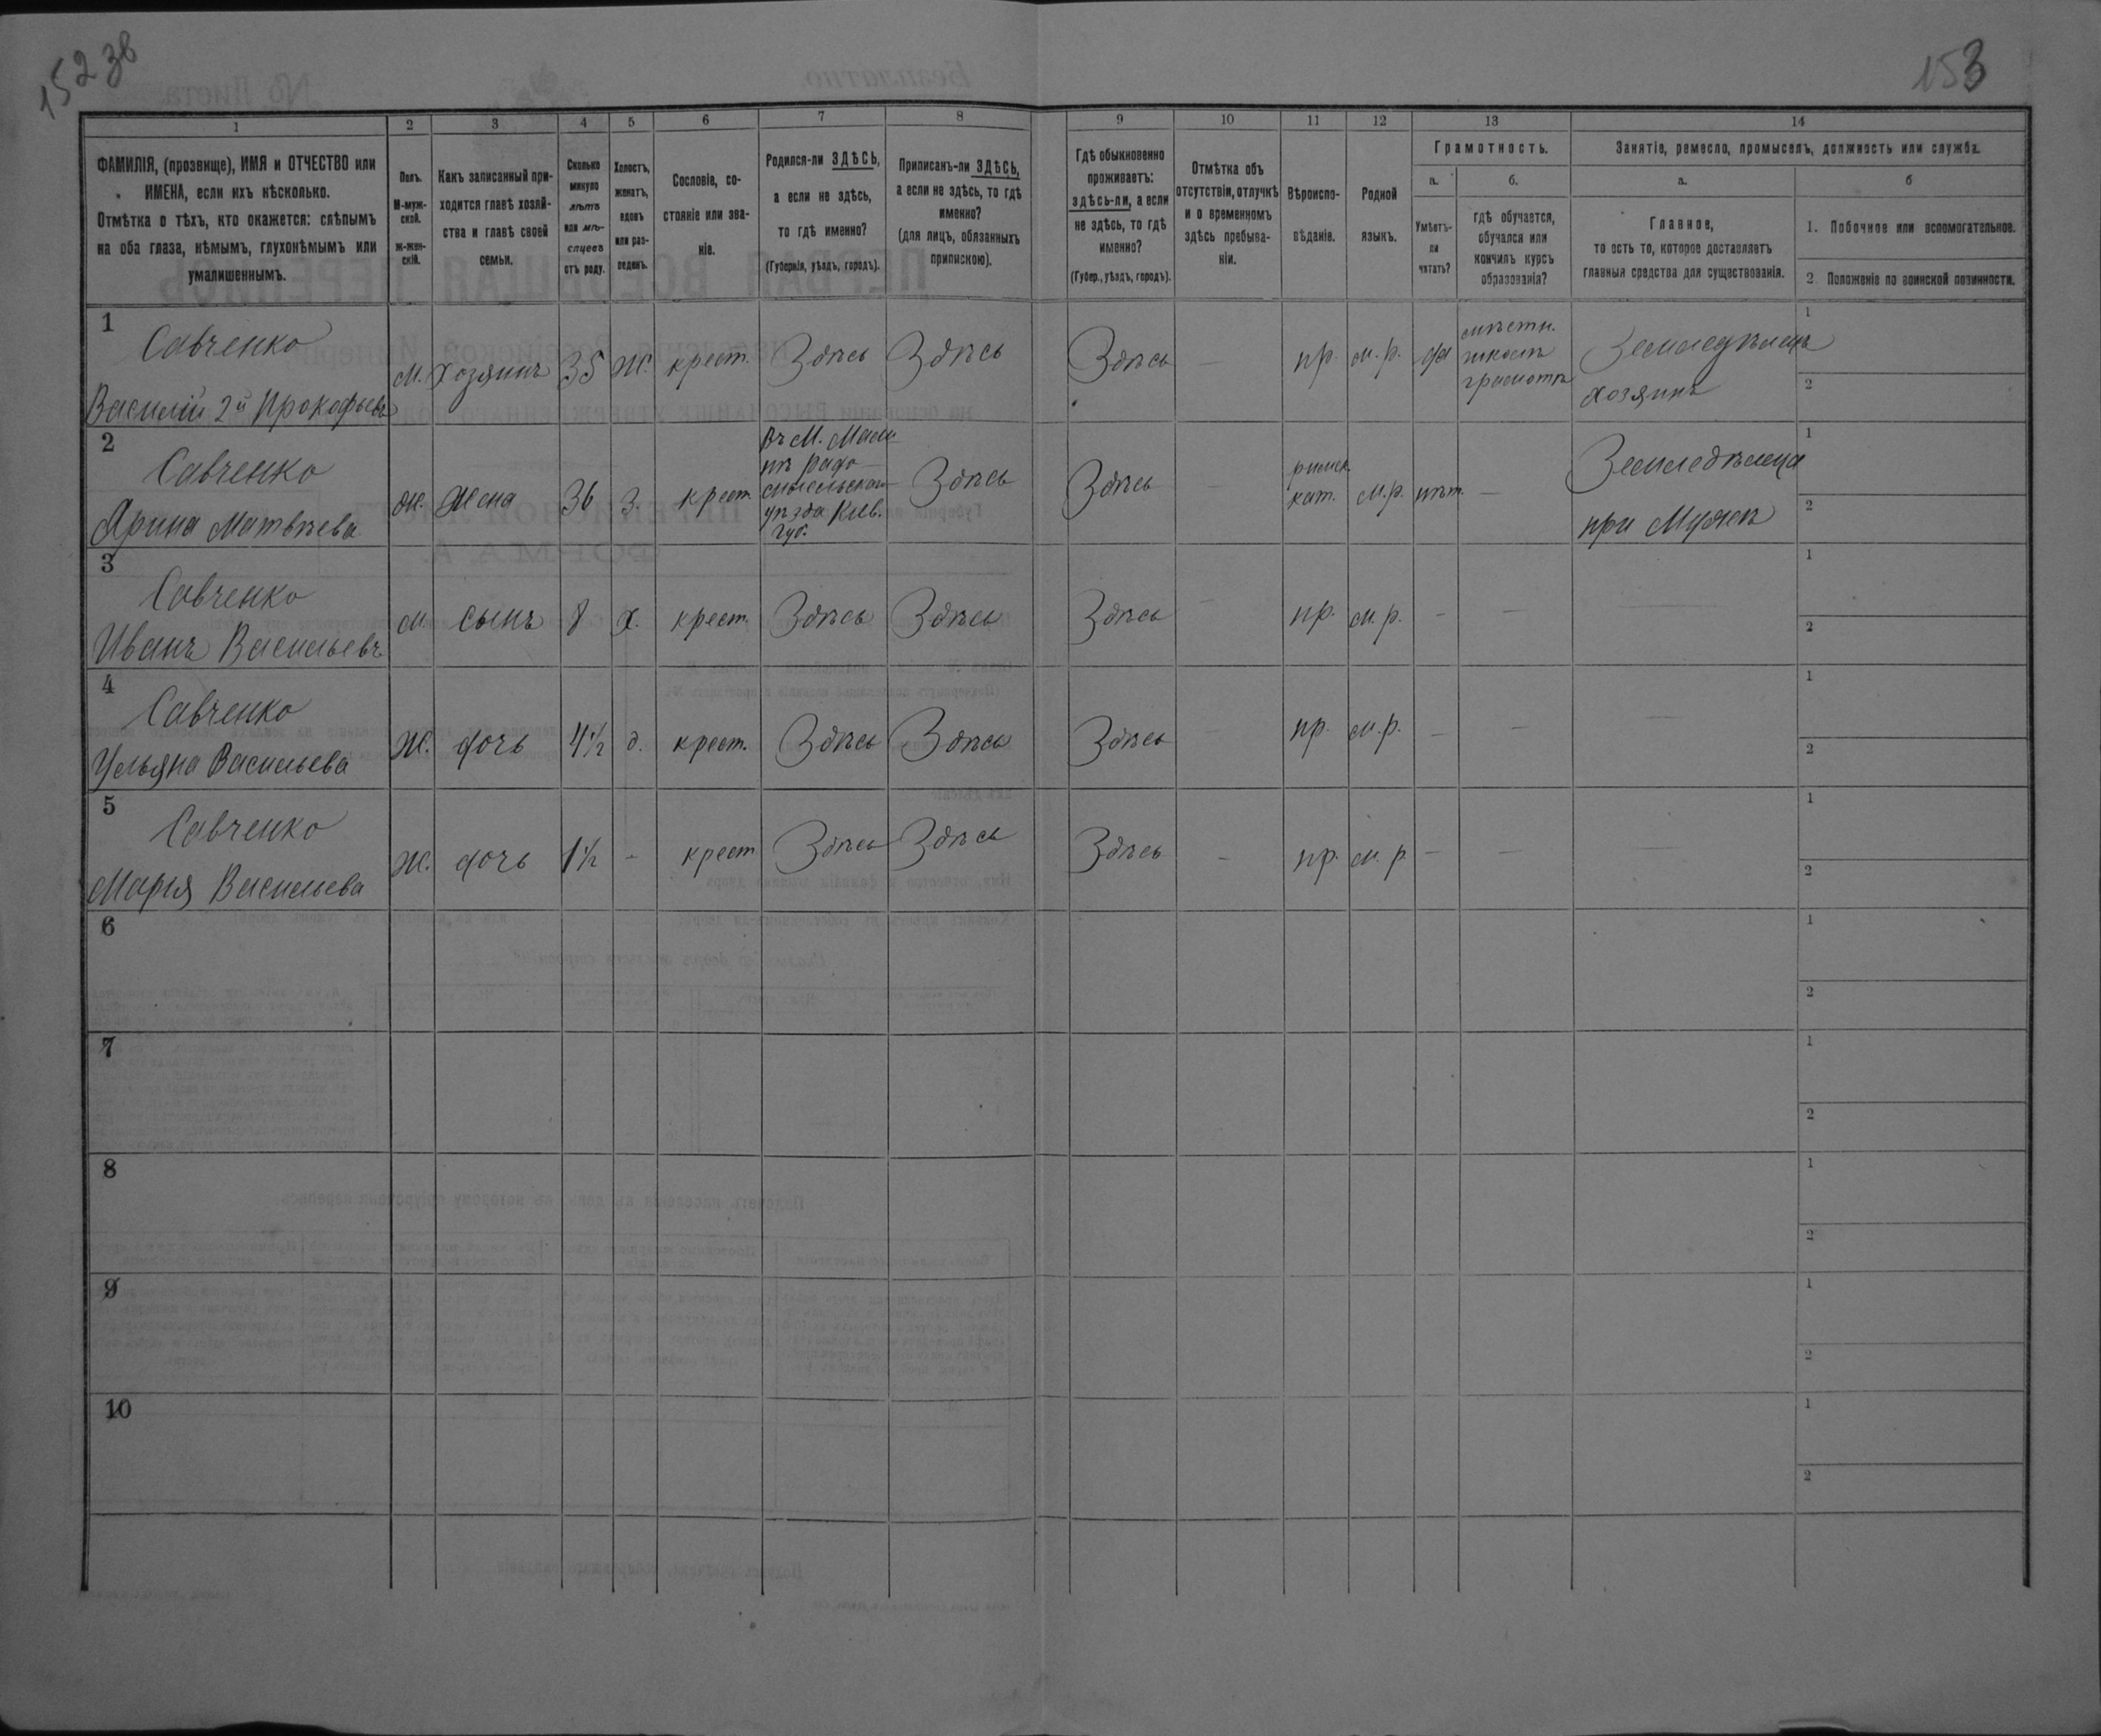 152 зв
153
1 2 3 4 5 6 7 8 9 10 11 12 13 14
ФАМИЛІЯ, (прозвище), ИМЯ и ОТЧЕСТВО или
ИМЕНА, если ихъ нѣсколько.
Отмѣтка о тѣхъ, кто окажется: слѣпымъ
на оба глаза, нѣмымъ, глухонѣмымъ или
умалишеннымъ.
Полъ.
М-муж-
ской.
ж-жен-
скій.
Какъ записанный при-
ходится главѣ хозяй-
ства и главѣ своей
семьи.
Сколько
минуло
лѣтъ
или мѣ-
сяцевъ
отъ роду.
Холостъ,
женатъ,
вдовъ
или раз-
веденъ.
Сословіе, со-
стояніе или зва-
ніе.
Родился-ли ЗДѢСЬ,
а если не здѣсь,
то гдѣ именно?
(Губернія, уѣздъ, городъ).
Приписанъ-ли ЗДѢСЬ,
а если не здѣсь, то гдѣ
именно?
(для лицъ, обязанныхъ
припискою).
Гдѣ обыкновенно
проживаетъ:
здѣсь-ли, а если
не здѣсь, то гдѣ
именно?
(Губер., уѣздъ, городъ).
Отмѣтка объ
отсутствіи, отлучкѣ
и о временномъ
здѣсь пребыва-
ніи.
Вѣроиспо-
вѣданіе.
Родной
языкъ.
Грамотность.
а.
Умѣетъ-
ли
читать?
б.
гдѣ обучается,
обучался или
кончилъ курсъ
образованія?
Занятіе, ремесло, промыселъ, должность или служба.
а.
Главное,
то есть то, которое доставляетъ
главныя средства для существованія.
б
1. Побочное или вспомогательное.
2 Положеніе по воинской повинности.
1
Савченко
Василій 2й Прокофьевъ
м.
хозяинъ
35
ж.
крест.
Здѣсь
Здѣсь
Здѣсь
—
пр.
м. р.
да
грамотѣ
Земледѣлецъ
хозяинъ
1
2
2
Савченко
Ярина Матвѣева
ж.
жена
36
з.
крест.
Въ М. Мали
нѣ Радо
мысльскаго
уѣзда Кіев.
губ.
Здѣсь
Здѣсь
—
римск.
кат.
м.р.
нѣт.
—
Земледѣлица
при Мужѣ
1
2
3
Савченко
Иванъ Васильевъ
м.
сынъ
8
х.
крест.
Здѣсь
Здѣсь
Здѣсь
—
пр.
м. р.
—
—
—
1
2
4
Савченко
Ульяна Васильева
ж.
дочь
4 1/2
д.
крест.
Здѣсь
Здѣсь
Здѣсь
—
пр.
м.р.
—
—
—
1
2
5
Савченко
Марія Васильева
ж.
дочь
1 1/2
-
крест
Здѣсь
Здѣсь
Здѣсь
—
пр.
м. р
—
—
—
1
2
6
1
2
7
1
2
8
1
2
9
1
2
10
1
2